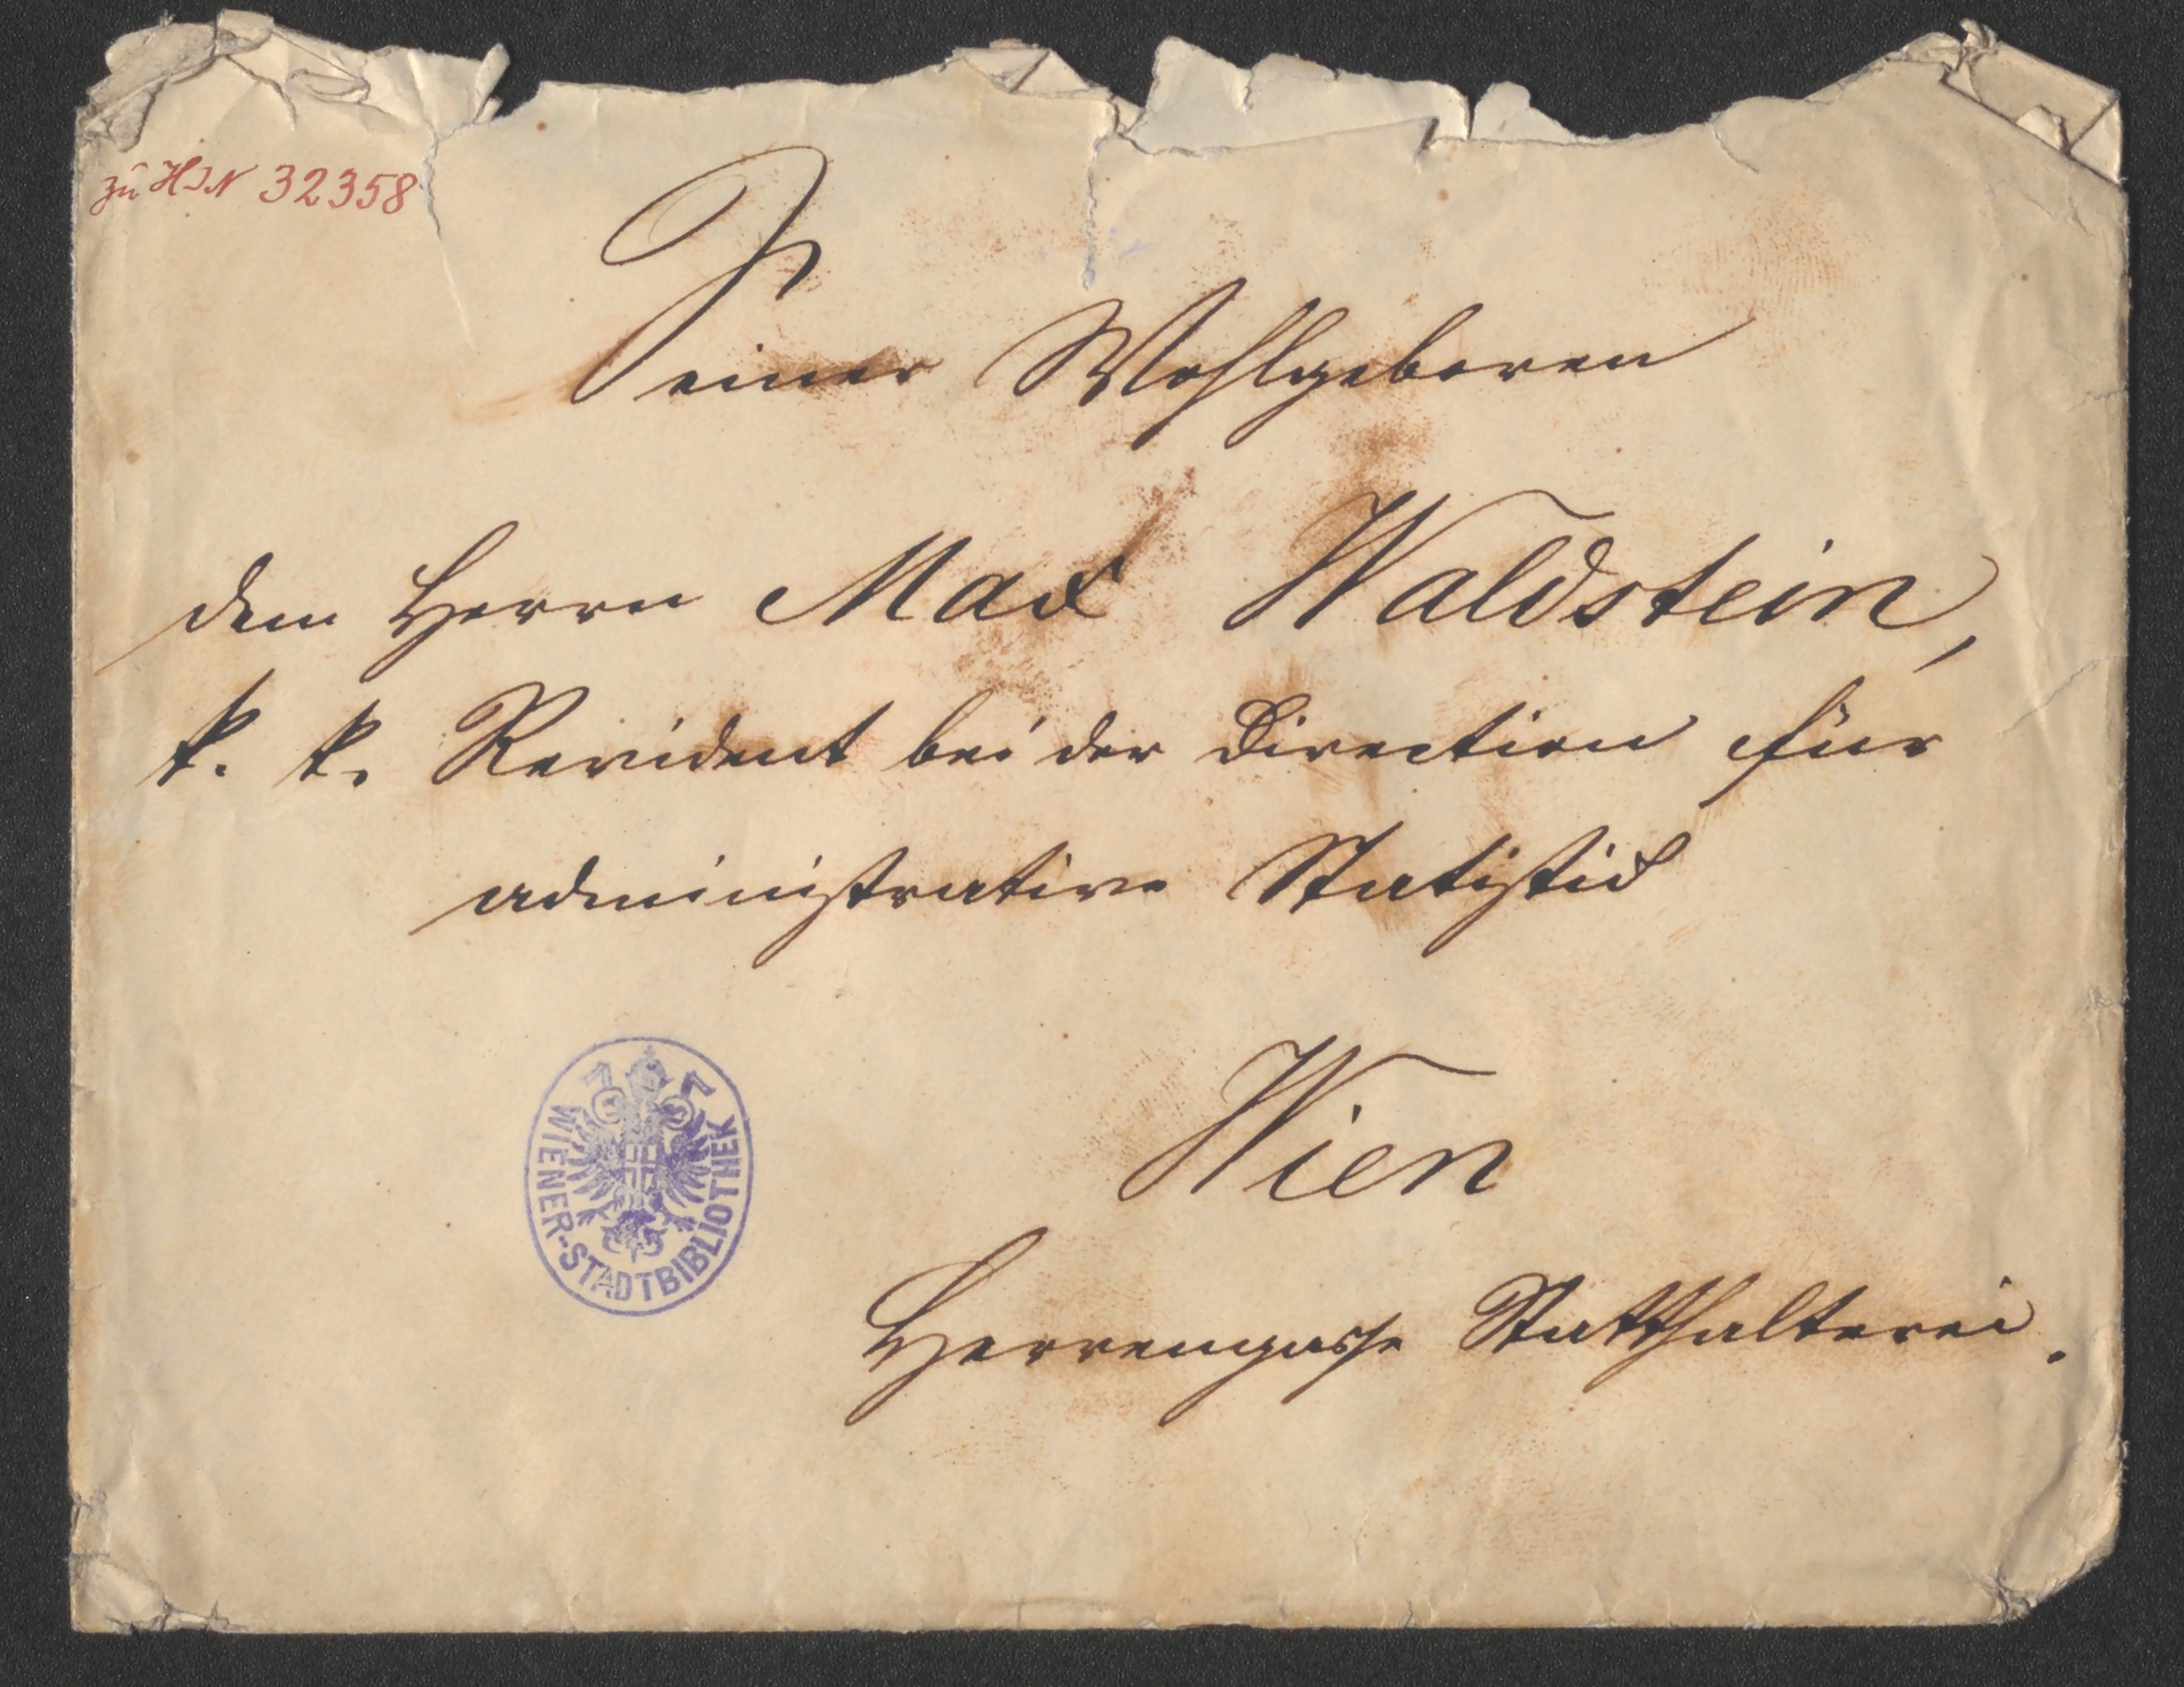 zu HIN 32358
Seiner Wohlgeboren
dem Herrn Max Waldstein,
k. k. Revident bei der Direction für
administrative Statistik
WIENER-STADTBIBLIOTHEK
Wien
Herrengasse Statthalterei.